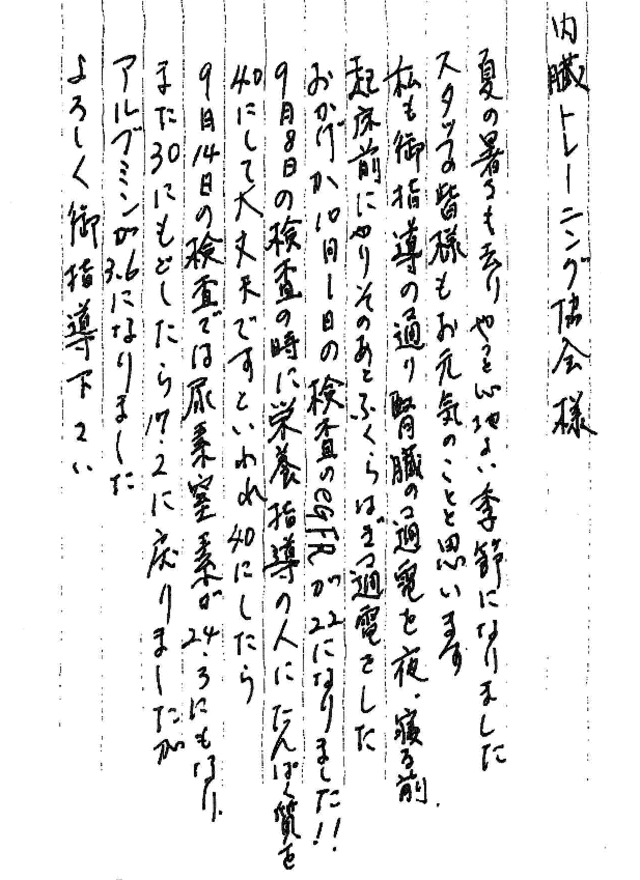 内臓トレーニング協会様
夏の暑さも去り やっと心地よい季節になりました
スタッフの皆様もお元気のことと思います
私も御指導の通り腎臓の通電を夜、寝る前、
起床前にやりそのあとふくらはぎの通電をした
おかげか10月1日の検査のeGFRが22になりました!!
9月8日の検査の時に栄養指導の人にたんぱく質を
40にして大丈夫ですといわれ 40にしたら
9月14日の検査では尿素窒素が24.3にもなり、
また30にもどしたら17.2に戻りましたが
アルブミンが3.6になりました
よろしく御指導下さい